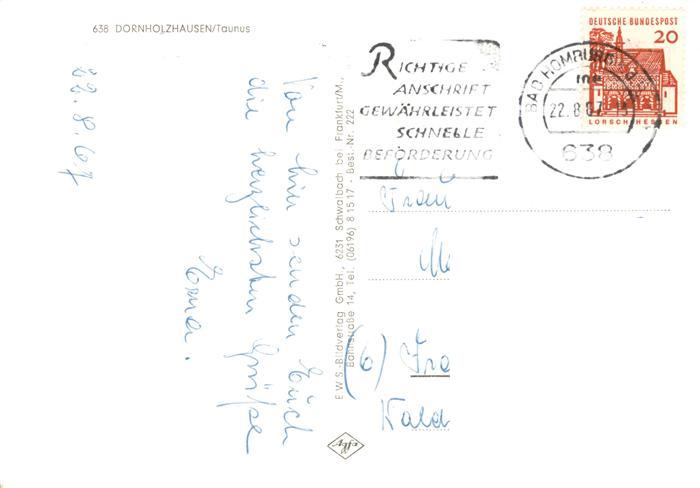 638 DORNHOLZHAUSEN/Taunus
22.8.67
Von hier senden Euch
die herzlichsten Grüße
Erna.
E W S.-Bildverlag GmbH., 6231 Schwalbach bei Frankfurt/M.,
Bahnstraße 14, Tel. (06196) 8 15 17 - Best.-Nr. 222
Agfa
RICHTIGE
ANSCHRIFT
GEWÄHRLEISTET
SCHNELLE
BEFÖRDERUNG
BAD HOMBURG
22.8.67
638
DEUTSCHE BUNDESPOST
20
LORSCH/HESSEN
Frau
M
(6) Fra
Wald